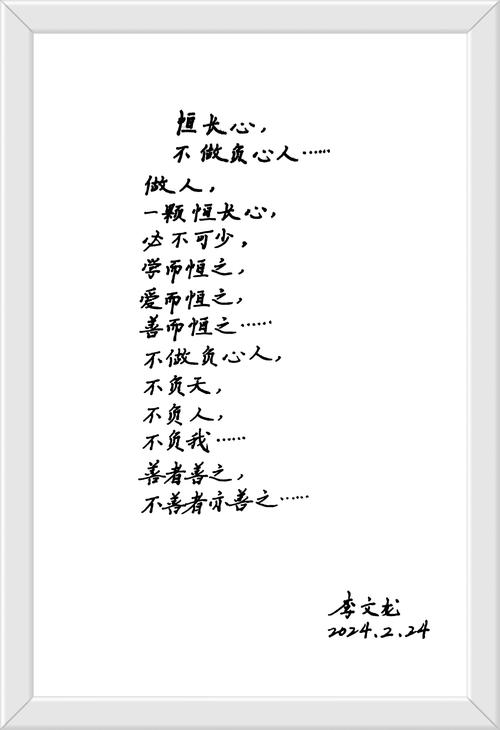 恒长心，
不做负心人……
做人，
一颗恒长心，
必不可少。
学而恒之，
爱而恒之，
善而恒之……
不做负心人，
不负天，
不负人，
不负我……
善者善之，
不善者亦善之……
李文龙
2024.2.24